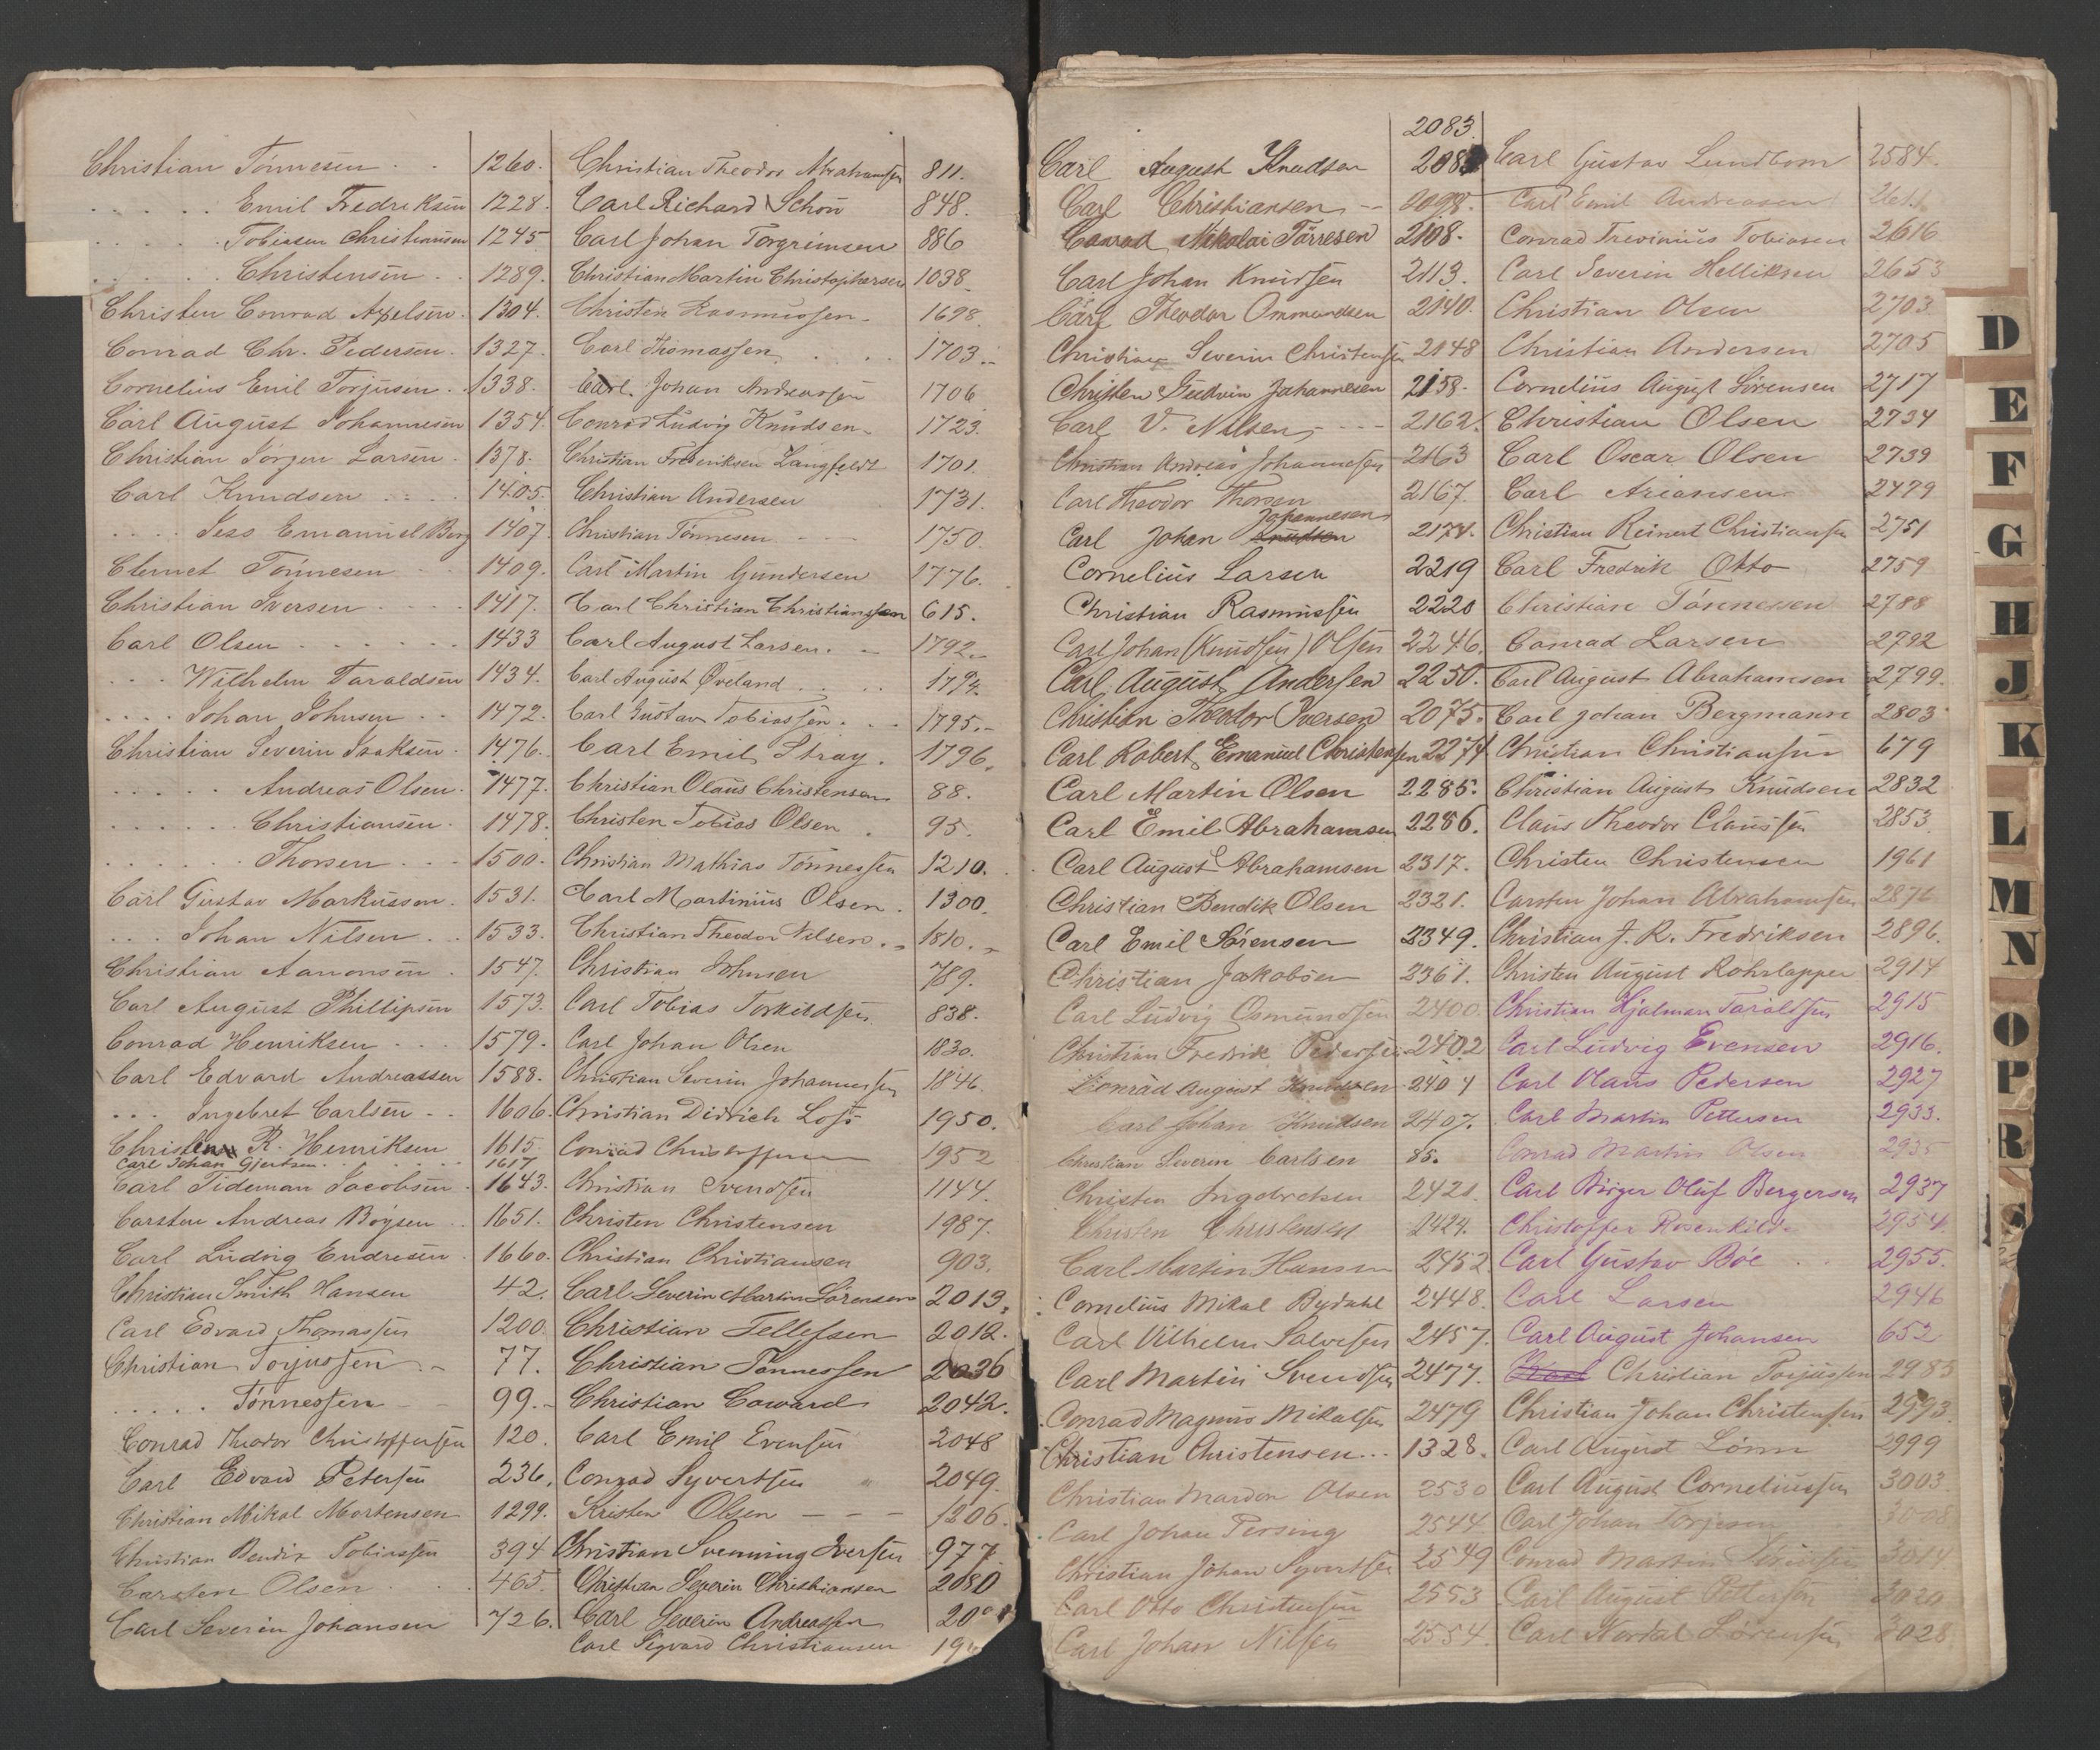 Christian Tönnesen . . 1260.
. . . . . Emil Fredriksen 1228.
. . . . . Tobiasen Christiansen 1245
. . . . . Christensen . . 1289.
Christen Conrad Axelsen. 1304.
Conrad Chr. Pedersen. 1327.
Cornelius Emil Torjusen. 1338.
Carl August Johannesen 1354.
Christian Jörgen Larsen. 1378.
Carl Knudsen . . . . 1405.
. . . . Jess Emanuel Berg 1407.
Clemet Tönnesen . . 1409.
Christian Iversen . . . . 1417.
Carl Olsen . . . . . . 1433
. . . Wilhelm Taraldsen 1434.
. . . . Johan Johnsen . . 1472.
Christian Severin Isaksen. 1476.
. . . . . Andreas Olsen. 1477.
. . . . . . Christiansen. 1478.
. . . . . . Thorsen . . . 1500.
Carl Gustav Markussen. 1531.
. . . Johan Nilsen . . 1533.
Christian Aanonsen . 1547.
Carl August Phillipsen 1573.
Conrad Henriksen . . . 1579.
Carl Edvard Andreassen 1588.
. . . Ingebret Carlsen . . 1606.
Christen R. Henriksen 1615.
Carl Johan Gjertsen . . . . . . 1617
Carl Tideman Jacobsen . 1643.
Carsten Andreas Böysen . . 1651.
Carl Ludvig Endresen . 1660.
Christian Smith Hansen 42.
Carl Edvard Thomassen 1200
Christian Torjussen . - 77.
. . . . . Tönnessen - - 99.-
Conrad Theodor Christoffersen 120.
Carl Edvard Petersen 236.
Christian Mikal Mortensen 1299.
Christian Bendix Tobiassen 394
Carsten Olsen . . . 465.
Carl Severin Johansen 726.
Christian Theodor Abrahamsen 811.
Carl Richard Schou 848.
Carl Johan Torgrimsen 886
Christian Martin Christophersen 1038.
Christen Rasmussen. 1698.
Carl Thomassen . . . 1703.-
Carl. Johan Andreassen 1706
Conrad Ludvig Knudsen. 1723.
Christian Frederiksen Langfeldt 1701.
Christian Andersen 1731.
Christian Tönnesen - - 1750.
Carl Martin Gundersen 1776.
Carl Christian Christianssen 615.
Carl August Larsen. - 1792.-
Carl August Øveland . . . . 1794.
Carl Gustav Tobiassen. . . 1795.-
Carl Emil Stray . 1796.
Christian Olaus Christensen 88.
Christen Tobias Olsen . 95.
Christian Mathias Tönnessen 1210.
Carl Martinius Olsen . 1300.
Christian Theodor Nilsen. . 1810.-
Christian Johnsen 789.
Carl Tobias Torkildsen 838.
Carl Johan Olsen 1830.
Christian Severin Johannessen 1846.
Christian Didrich Loss 1950.
Conrad 1952
Christian Svendsen 1144.
Christen Christensen 1987.
Christian Christiansen 903.
Carl Severin Martin Sörensen 2013.
Christian Tellefsen 2012.
Christian Tönnessen 2036
Christian Coward 2042.
Carl Emil Evensen 2048
Conrad Syvertsen " 2049.
Kristen Olsen - - - 1206.
Christian Svenning Iversen 977.
Christian Severin Christiansen 2080
Carl Severin Andreassen
Carl Sigvard Christiansen
2083.
Carl August Knudsen
Carl Christiansen - - 2098.
Conrad Nikolai Törresen 2108.
Carl Johan Knudsen 2113.
Carl Theodor Ommundsen 2140.
Christian Severin Christensen 2148
Christen Gudvin Johannesen 2158.
Carl V. Nilsen - - - 2162.
Christian Andreas Johannessen 2163
Carl Theodor Thorsen 2167.
Johannesen
Carl Johan Knudsen 2174.
Cornelius Larsen 2219
Christian Rasmussen 2220
Carl Johan (Knudsen) Olsen 2246.
Carl August Andersen 2250.
Christian Theodor Iversen 2075.
Carl Robert Emanuel Christensen 2274
Carl Martin Olsen 2285.
Carl Emil Abrahamsen 2286.
Carl August Abrahamsen 2317.
Christian Bendik Olsen 2321.
Carl Emil Sörensen 2349.
Christian Jakobsen 2361.
Carl Ludvig Osmundsen 2400.
Christian Fredrik Pedersen 2402
Conrad August Knudsen 2404
Carl Johan Knudsen 2407.
Christian Severin Carlsen 85.
Christen Ingebretsen 2421.
Christen Christensen 2424.
Carl Martin Hansen 2452
Cornelius Mikal Bydahl 2448.
Carl Vilhelm Salvesen 2457.
Carl Martin Svendsen 2477.
Conrad Magnus Mikalsen 2479
Christian Christensen . . 1328.
Christian Mardon Olsen 2530
Carl Johan Persing 2544
Christian Johan Syvertsen 2549
Carl Otto Christensen 2553
Carl Johan Nilsen 2554.
Carl Gustav Lundbom 2584.
Carl Emil Andreasen
Conrad Trevinius Tobiasen 2616
Carl Severin Helliksen 2653
Christian Olsen 2703.
Christian Andersen 2705
Cornelius August Sörensen 2717
Christian Olsen 2734
Carl Oscar Olsen 2739
Carl Ariansen 2479
Christian Reinert Christiansen 2751
Carl Fredrik Otto 2759
Christian Tönnessen 2788
Conrad Larsen 2792
Carl August Abrahamsen 2799.
Carl Johan Bergmann 2803
Christian Christiansen 679
Christian August Knudsen 2832
Claus Theodor Claussen 2853.
Christen Christensen 1961
Carsten Johan Abrahamsen 2876
Christian J. R. Fredriksen 2896.
Christen August Rohrlapper 2914
Christian Hjalmar Taraldsen 2915
Carl Ludvig Evensen 2916.
Carl Olaus Pedersen 2927
Carl Martin Pettersen 2933.
Conrad Martin Olsen 2935
Carl Birger Oluf Bergersen 2937
Christoffer Rosenkilde 2954.
Carl Gustav Böe . . 2955.
Carl Larsen 2946
Carl August Johansen 652
Christian Torjussen 2983
Christian Johan Christensen 2993.
Carl August Lönn 2999
Carl August Corneliussen 3003.
Carl Johan Torjesen 3008
Conrad Martin 3014
Carl August Pettersen 3020
Carl Norkal Sörensen 3028
D
E
F
G
H
J
K
L
M
N
O
P
R
S